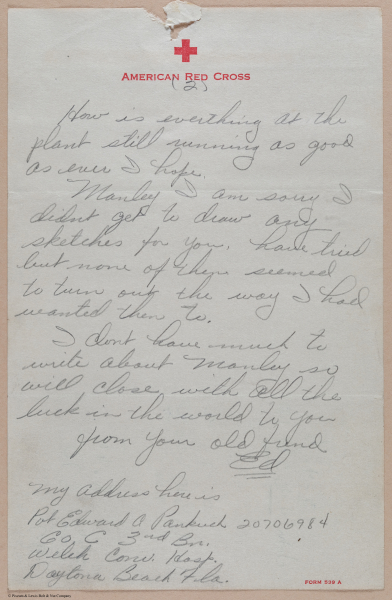 AMERICAN RED CROSS
(2)
How is everthing at the
plant still running as good
as ever I hope.
Manley I am sorry I
didnt get to draw any
sketches for you. have tried
but none of them seemed
to turn out the way I had
wanted them to.
I dont have much to
write about Manley so
will close with all the
luck in the world to you
from your old frend
Ed
My address here is
Pvt Edward A 20706984
Co. C 3rd Bn.
Welch Conv. Hosp.
Daytona Beach Fla.
FORM 539 A
© Pratt &